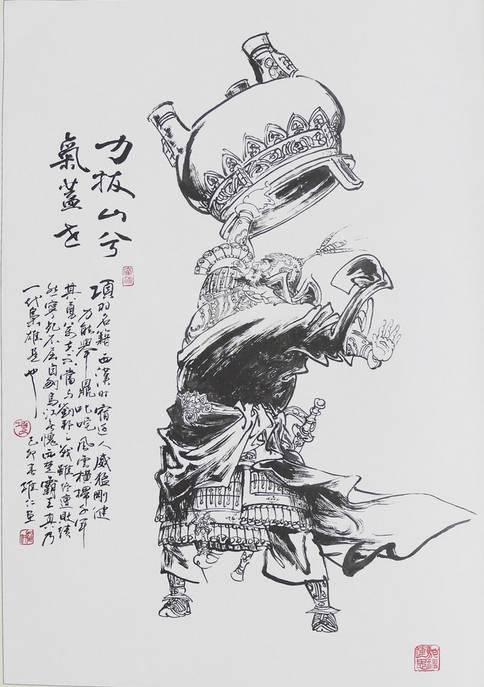 力拔山兮
氣蓋世
項羽名籍西漢時宿遷人威猛剛健
力能舉鼎叱咤風雲橫掃千軍
其勇萬夫不當與劉邦之戰雖經連敗績
然寧死不屈自刎烏江不愧西楚霸王真乃
一代梟雄是也
己卯雄仁